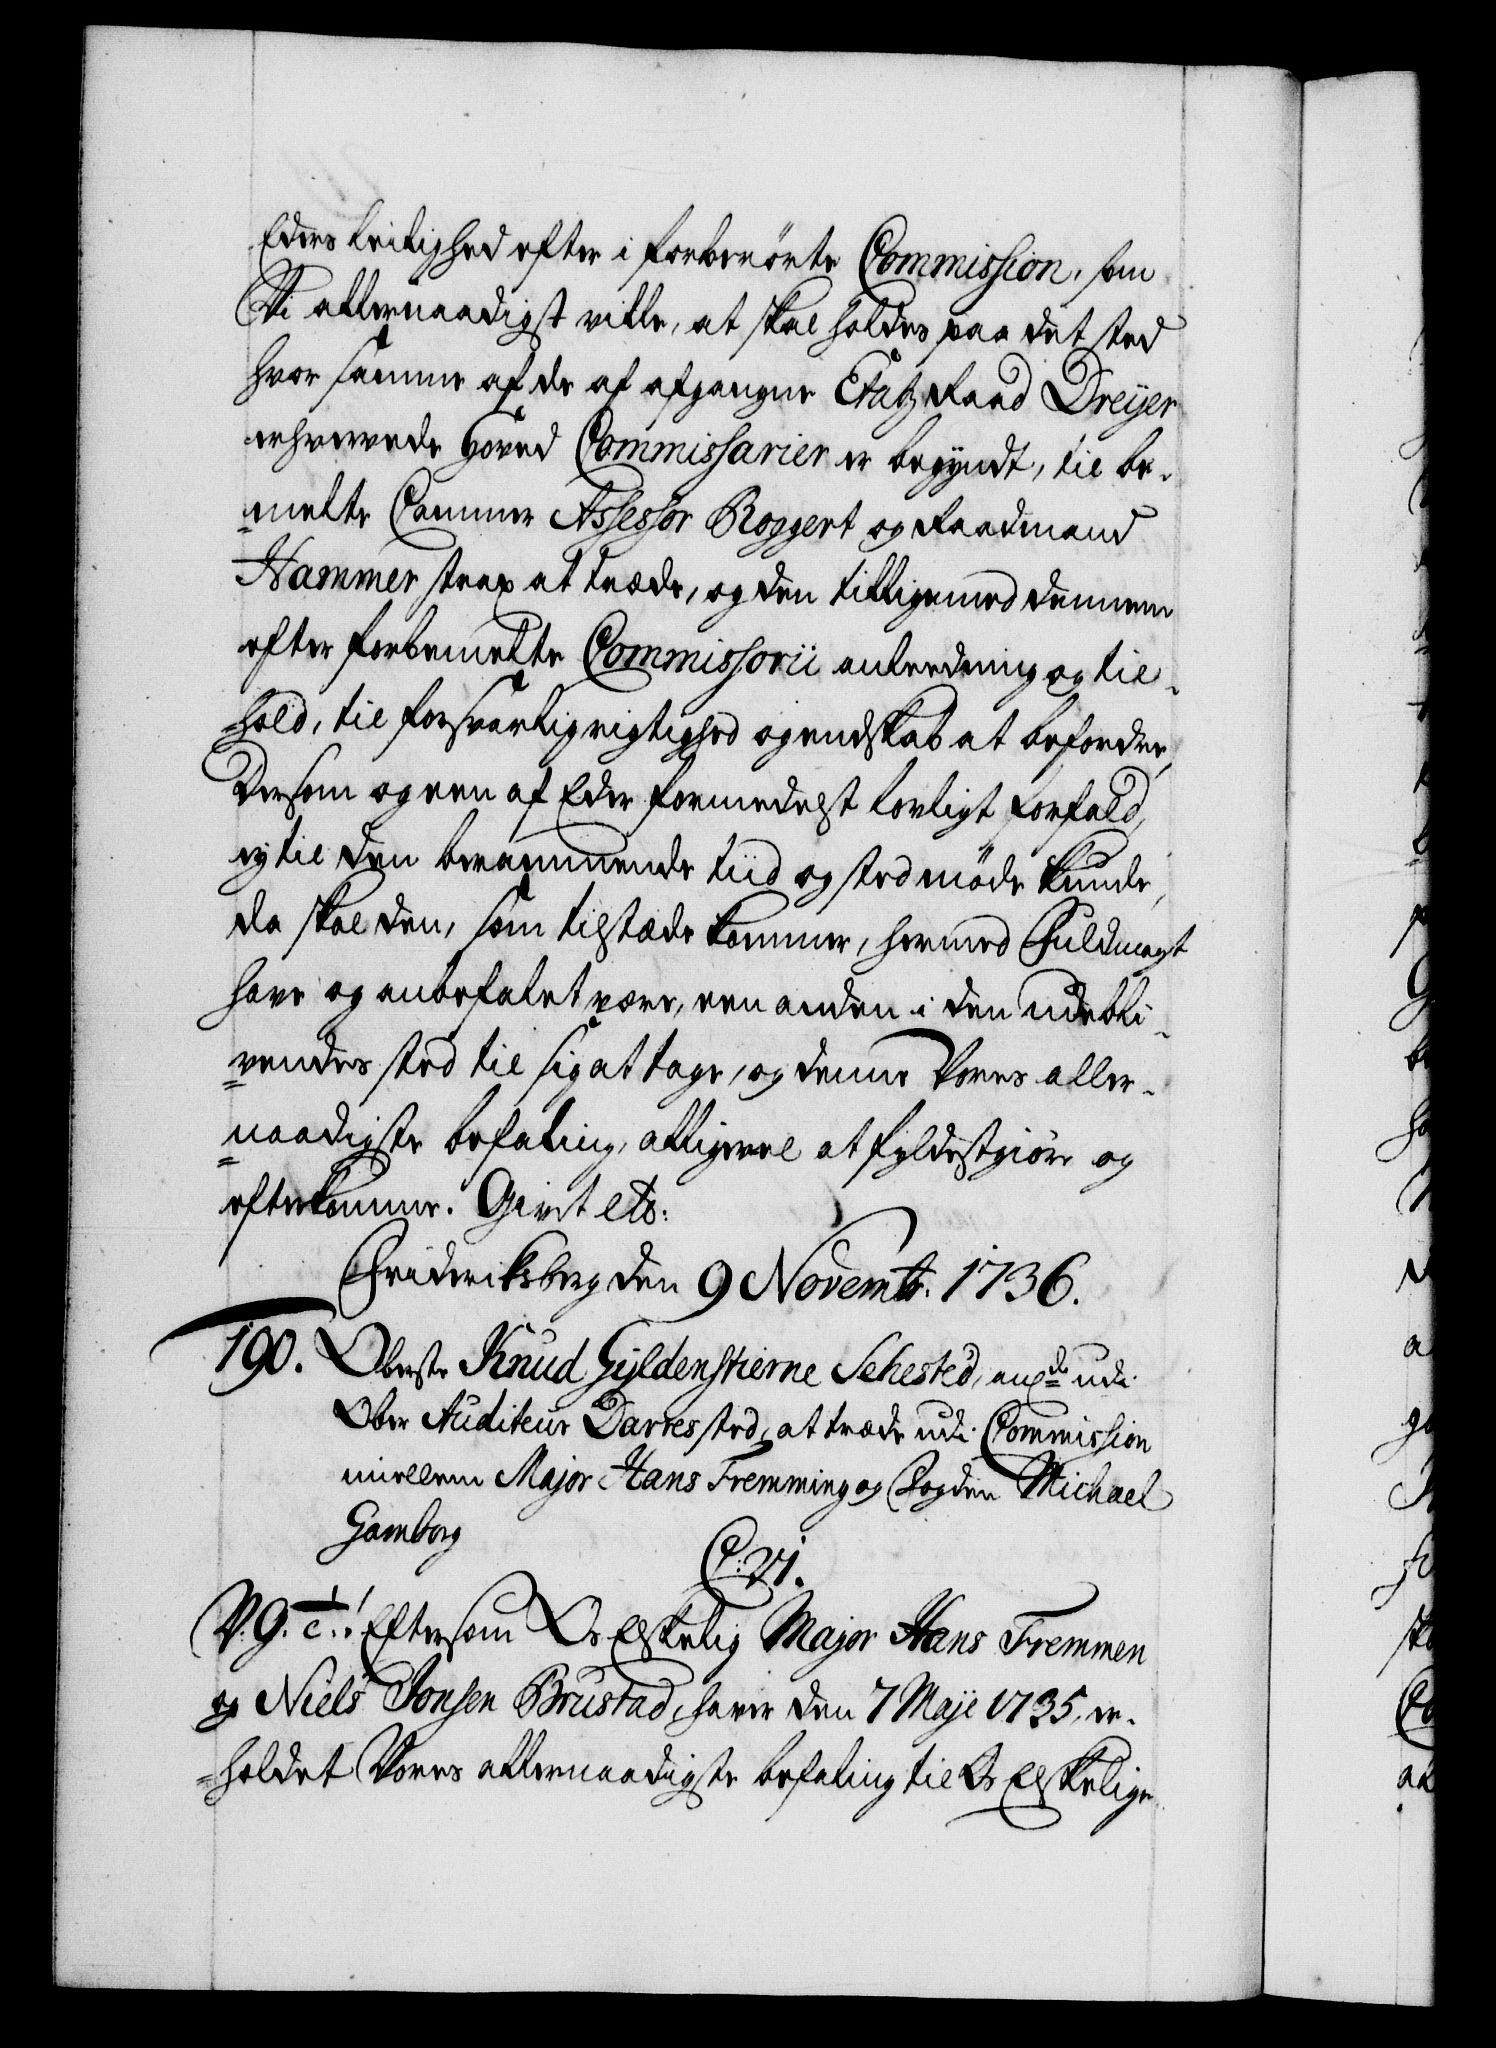 Eders leilighed efter i forberörte Commission, som
Vi allernaadigst ville, at skal holdes paa det sted
hvor samme af de af afgangne EtatzRaad Dreÿer
erhvervede Hoved Commissarier er begÿndt, til be-
=melte Cammer Assessor Roggert og Raadmand
Hammer strax at træde, og den tilligemed dennem
efter forbemelte Commissorii anledning og til-
hold, til forsvarlig rigtighed og endskab at befordre,
Dersom og een af Eder formedelst lovligt forfald,
eÿ til den berammende tiid og sted möde kunde,
da skal den, som tilstæde kommer, hermed Fuldmagt
have og anbefalet være, een anden i den udebli-
=vendes sted til sig at tage, og denne Vores aller-
=naadigste befaling, alligevel at fyldestgiöre og
efterkomme. Givet etc:
Friderichsberg den 9 Novembr. 1736.
190. Oberste Knud Gÿldenstierne Sehested, anxde udi
Ober Auditeur Darres sted, at træde udi Commission
imellem Major Hans Fremming og Fogden Michael
Gamborg
C: VI.
V. G. T.! Eftersom Os Elskelig Major Hans Fremmen
og Niels Jonsen Brustad, haver den 7 Maji 1735, er-
=holdet Vores allernaadigste befaling til Os Elskelige